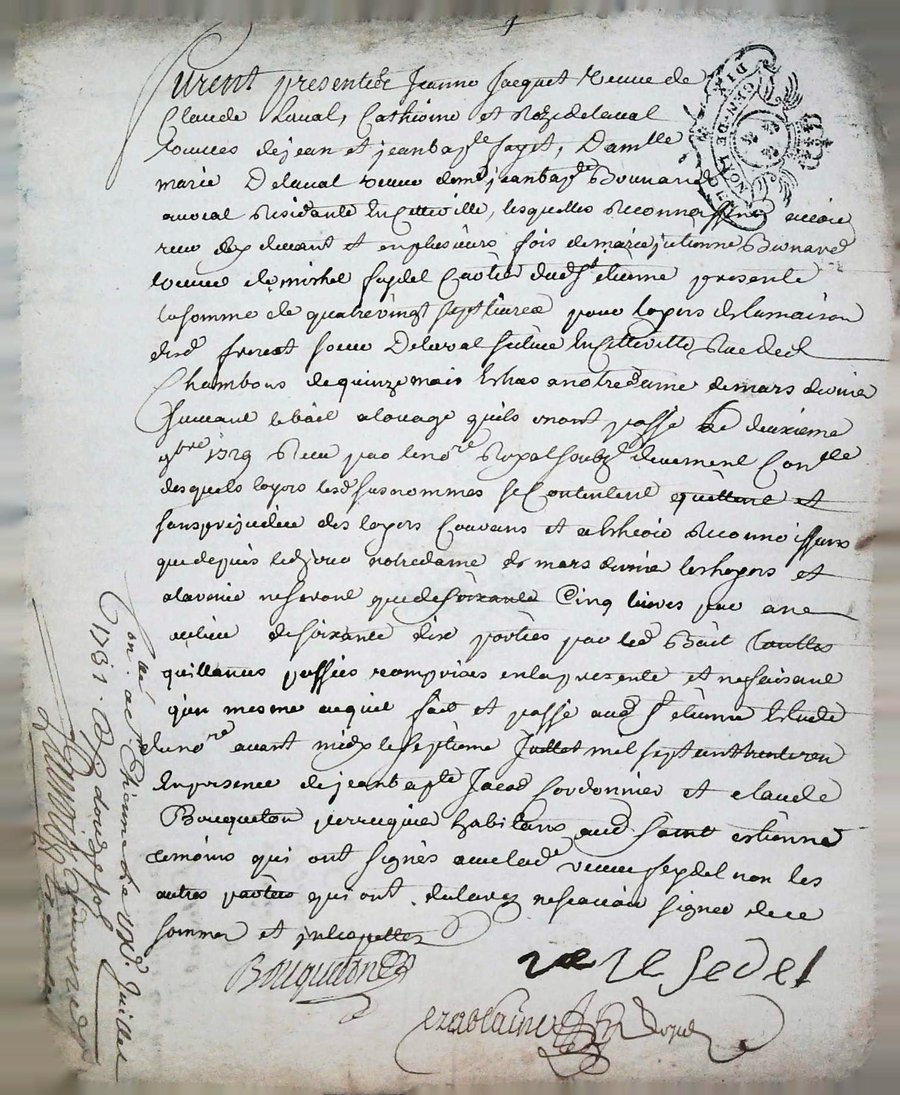 furent presentes Jeanne Jacquet veuve de
Claude Laval, Catherine et Roze delaval
veuves de jean et jean bapte fayet, Damlle
marie Delaval veuve de me jean bapte Bonnard
avocat Residante En cette ville, lesquelles Reconnoissent avoir
receu cy devant et en plusieurs fois de marie julienne Bonnard
veuve de michel seydel dud st etienne presente
la somme de quatre vingt sept livres pour loyers de la maison
desd et soeur Delaval scituée En cette ville Rue de
Chambons de quinze mois Echus a notre dame de mars dernier
suivant le bail a louage quils en ont passé le deuxieme
9bre 1729 Receu par le nore Royal soubzé deuement Conllé
desquels loyers lesd susnommés se Contentent quittent et
sans prejudice des loyers Courans et a Echeoir Reconnoissans
que depuis led jour notre dame de mars dernier les loyers et
a l'avenir ne seront que de soixante Cinq livres par an
au lieu de soixante dix portées par led Bail touttes
quittances passées comprises en la presente et ne faisant
qun mesme acquit fait et passé aud st etienne Etude
du nore avant midy le septieme Juillet mil sept cent trente un
En presence de jean bapte Jacod Cordonnier et claude
Bouqueton perruquier habitans aud saint estienne
temoins qui ont signés avec lade veuve seydel non les
autres parties qui ont declarez ne sçavoir signer de ce
sommez et interpellez
DIX
DEN. DE NOM
Bouqueton
ve se de l
Con.llé a st Etienne Le Juillet
1731. R douze sols